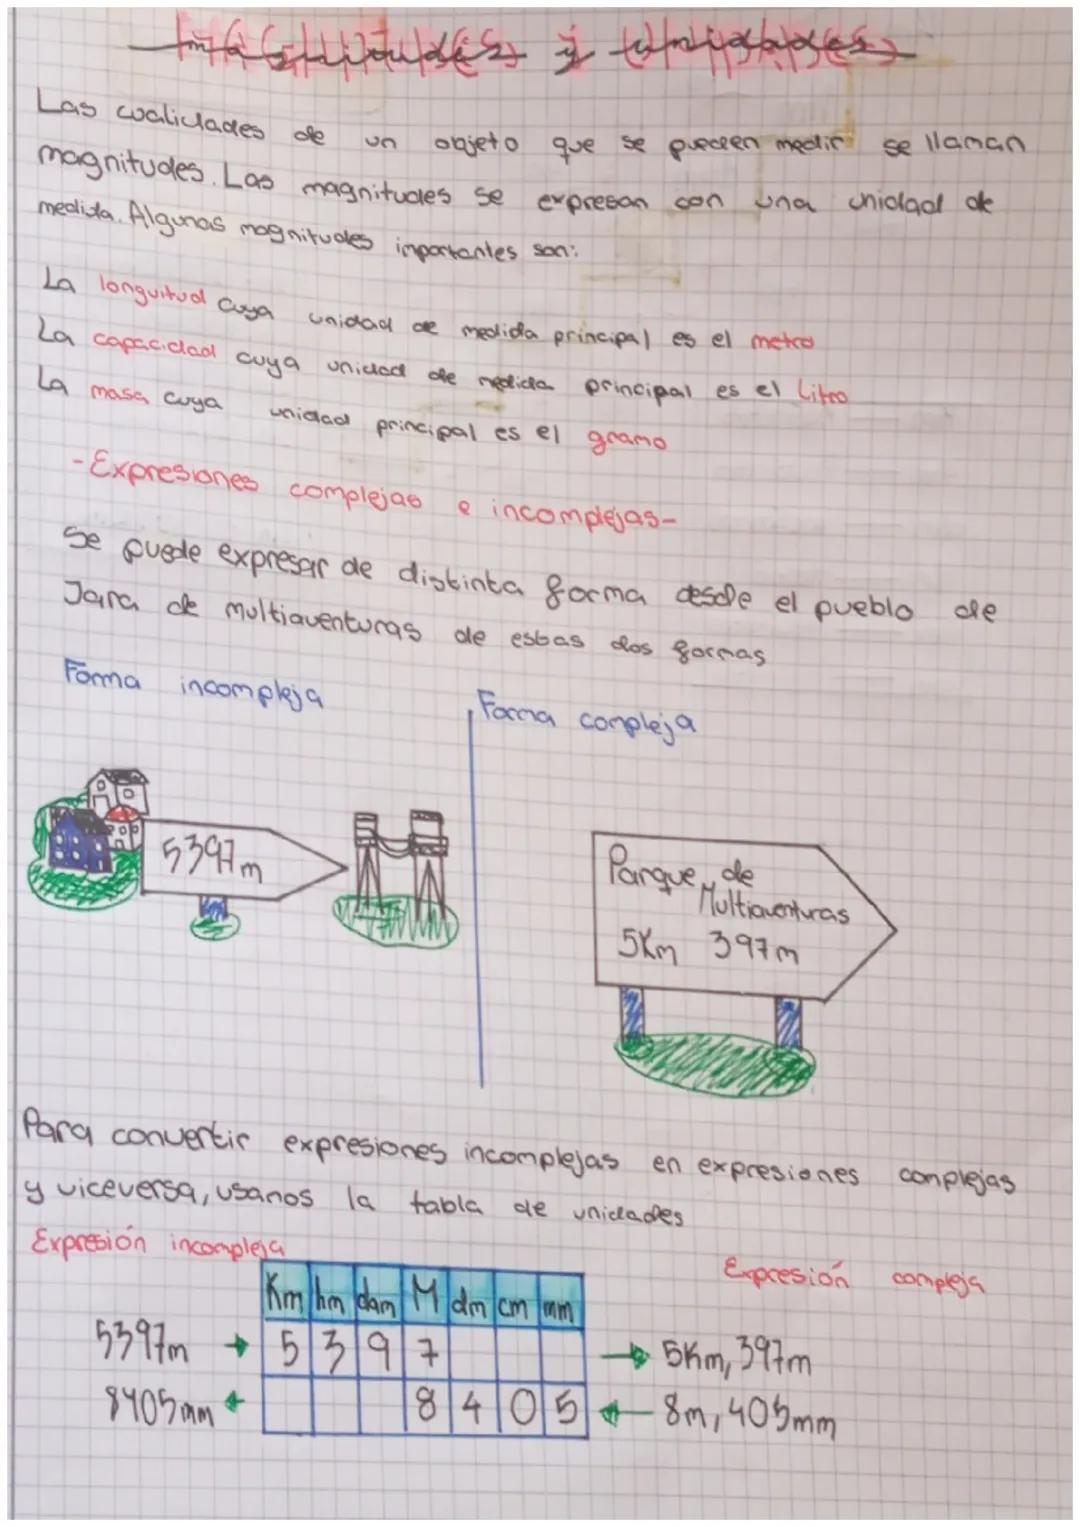 magnitudes y unidades
Las cualidades de un objeto que se pueden medir se llaman
magnitudes. Las magnitudes se expresan con una unidad de
medida. Algunas magnitudes importantes son:
La longuitud cuya unidad de medida principal es el metro
La capacidad cuya unidad de medida principal es el Litro
La masa cuya unidad principal es el gramo
-Expresiones complejas e incomplejas-
Se puede expresar de distinta forma desde el pueblo de
Jara de multiaventuras de estas dos formas
Forma incompleja
Forma compleja
5397m
Parque de
Multiaventuras
5Km 397m
Para convertir expresiones incomplejas en expresiones complejas
y viceversa, usamos la tabla de unidades
Expresión incompleja
Expresión compleja
Km hm dam M dm cm mm
5397m → 5 3 9 7 → 5Km, 397m
8405mm ← 8 4 0 5 ← 8m, 405mm